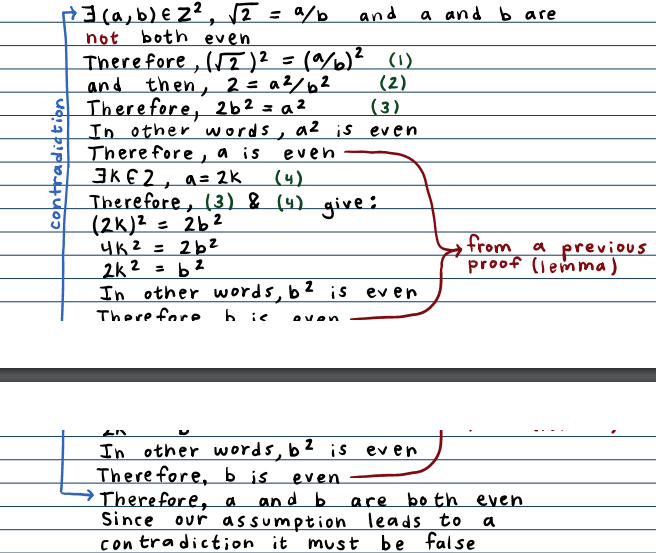 ∃(a,b) ∈ Z², √2 = a/b and a and b are
not both even
Therefore, (√2)² = (a/b)² (1)
and then, 2 = a²/b² (2)
Therefore, 2b² = a² (3)
In other words, a² is even
Therefore, a is even
∃K∈Z, a = 2K (4)
Therefore, (3) & (4) give:
(2K)² = 2b²
4K² = 2b²
2K² = b²
In other words, b² is even
Therefore b is even
contradiction
from a previous
proof (lemma)
In other words, b² is even
Therefore, b is even
Therefore, a and b are both even
Since our assumption leads to a
contradiction it must be false